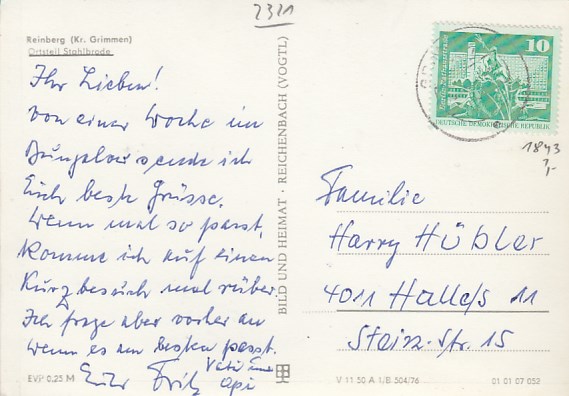 2321
Reinberg (Kr. Grimmen)
Ortsteil Stahlbrode
Ihr Lieben!
Von einer Woche im
Bungalow sende ich
Euch beste Grüsse.
Wenn mal so passt,
komme ich auf einen
Kurzbesuch mal rüber
Ich frage aber vorher an
wenn es am Besten passt.
Euer Fritz
Vati
Opi
EVP 0,25 M
BILD UND HEIMAT · REICHENBACH (VOGTL)
10
Berlin, Rathausstraße
DEUTSCHE DEMOKRATISCHE REPUBLIK
1843
Familie
Harry Hübler
4011 Halle/S 11
Steinstr. 15
V 11 50 A 1/B 504/76
01 01 07 052